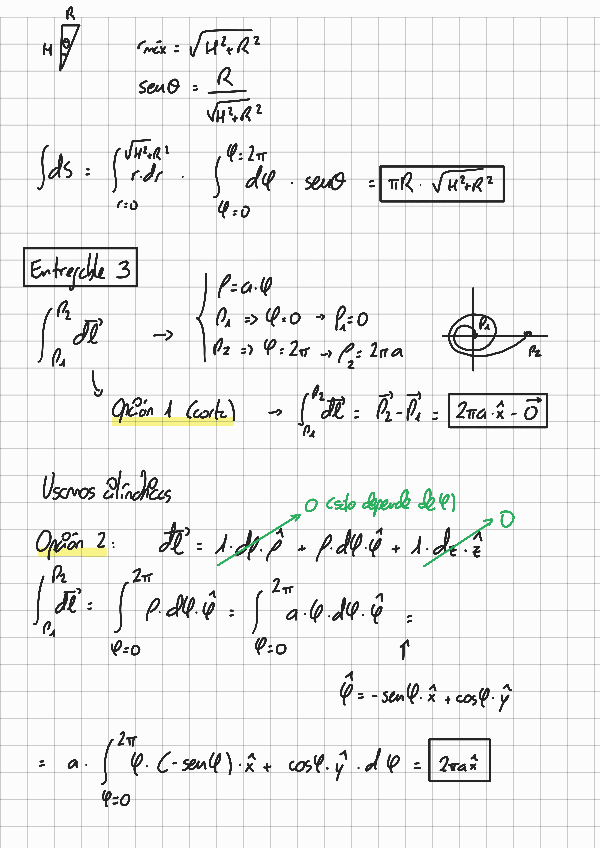 R
H θ
r máx = √(H²+R²)
senθ = R / √(H²+R²)
∫ds = ∫_{r=0}^{√(H²+R²)} r·dr · ∫_{φ=0}^{φ=2π} dφ · senθ = πR · √(H²+R²)
Entregable 3
∫_{P₁}^{P₂} d\vec{l} → { ρ = a·φ
P₁ => φ=0 → ρ₁=0
P₂ => φ=2π → ρ₂=2πa
P₁
P₂
Opción 1 (corta) → ∫_{P₁}^{P₂} d\vec{l} = \vec{P₂} - \vec{P₁} = 2πa·x̂ - \vec{0}
Usamos cilíndricas
0 (solo depende de φ)
Opción 2: d\vec{l} = 1·dρ·ρ̂ + ρ·dφ·φ̂ + 1·dz·ẑ 0
∫_{P₁}^{P₂} d\vec{l} = ∫_{φ=0}^{2π} ρ·dφ·φ̂ = ∫_{φ=0}^{2π} a·φ·dφ·φ̂ =
↑
φ̂ = -senφ·x̂ + cosφ·ŷ
= a · ∫_{φ=0}^{2π} φ·(-senφ)·x̂ + cosφ·ŷ·dφ = 2πax̂